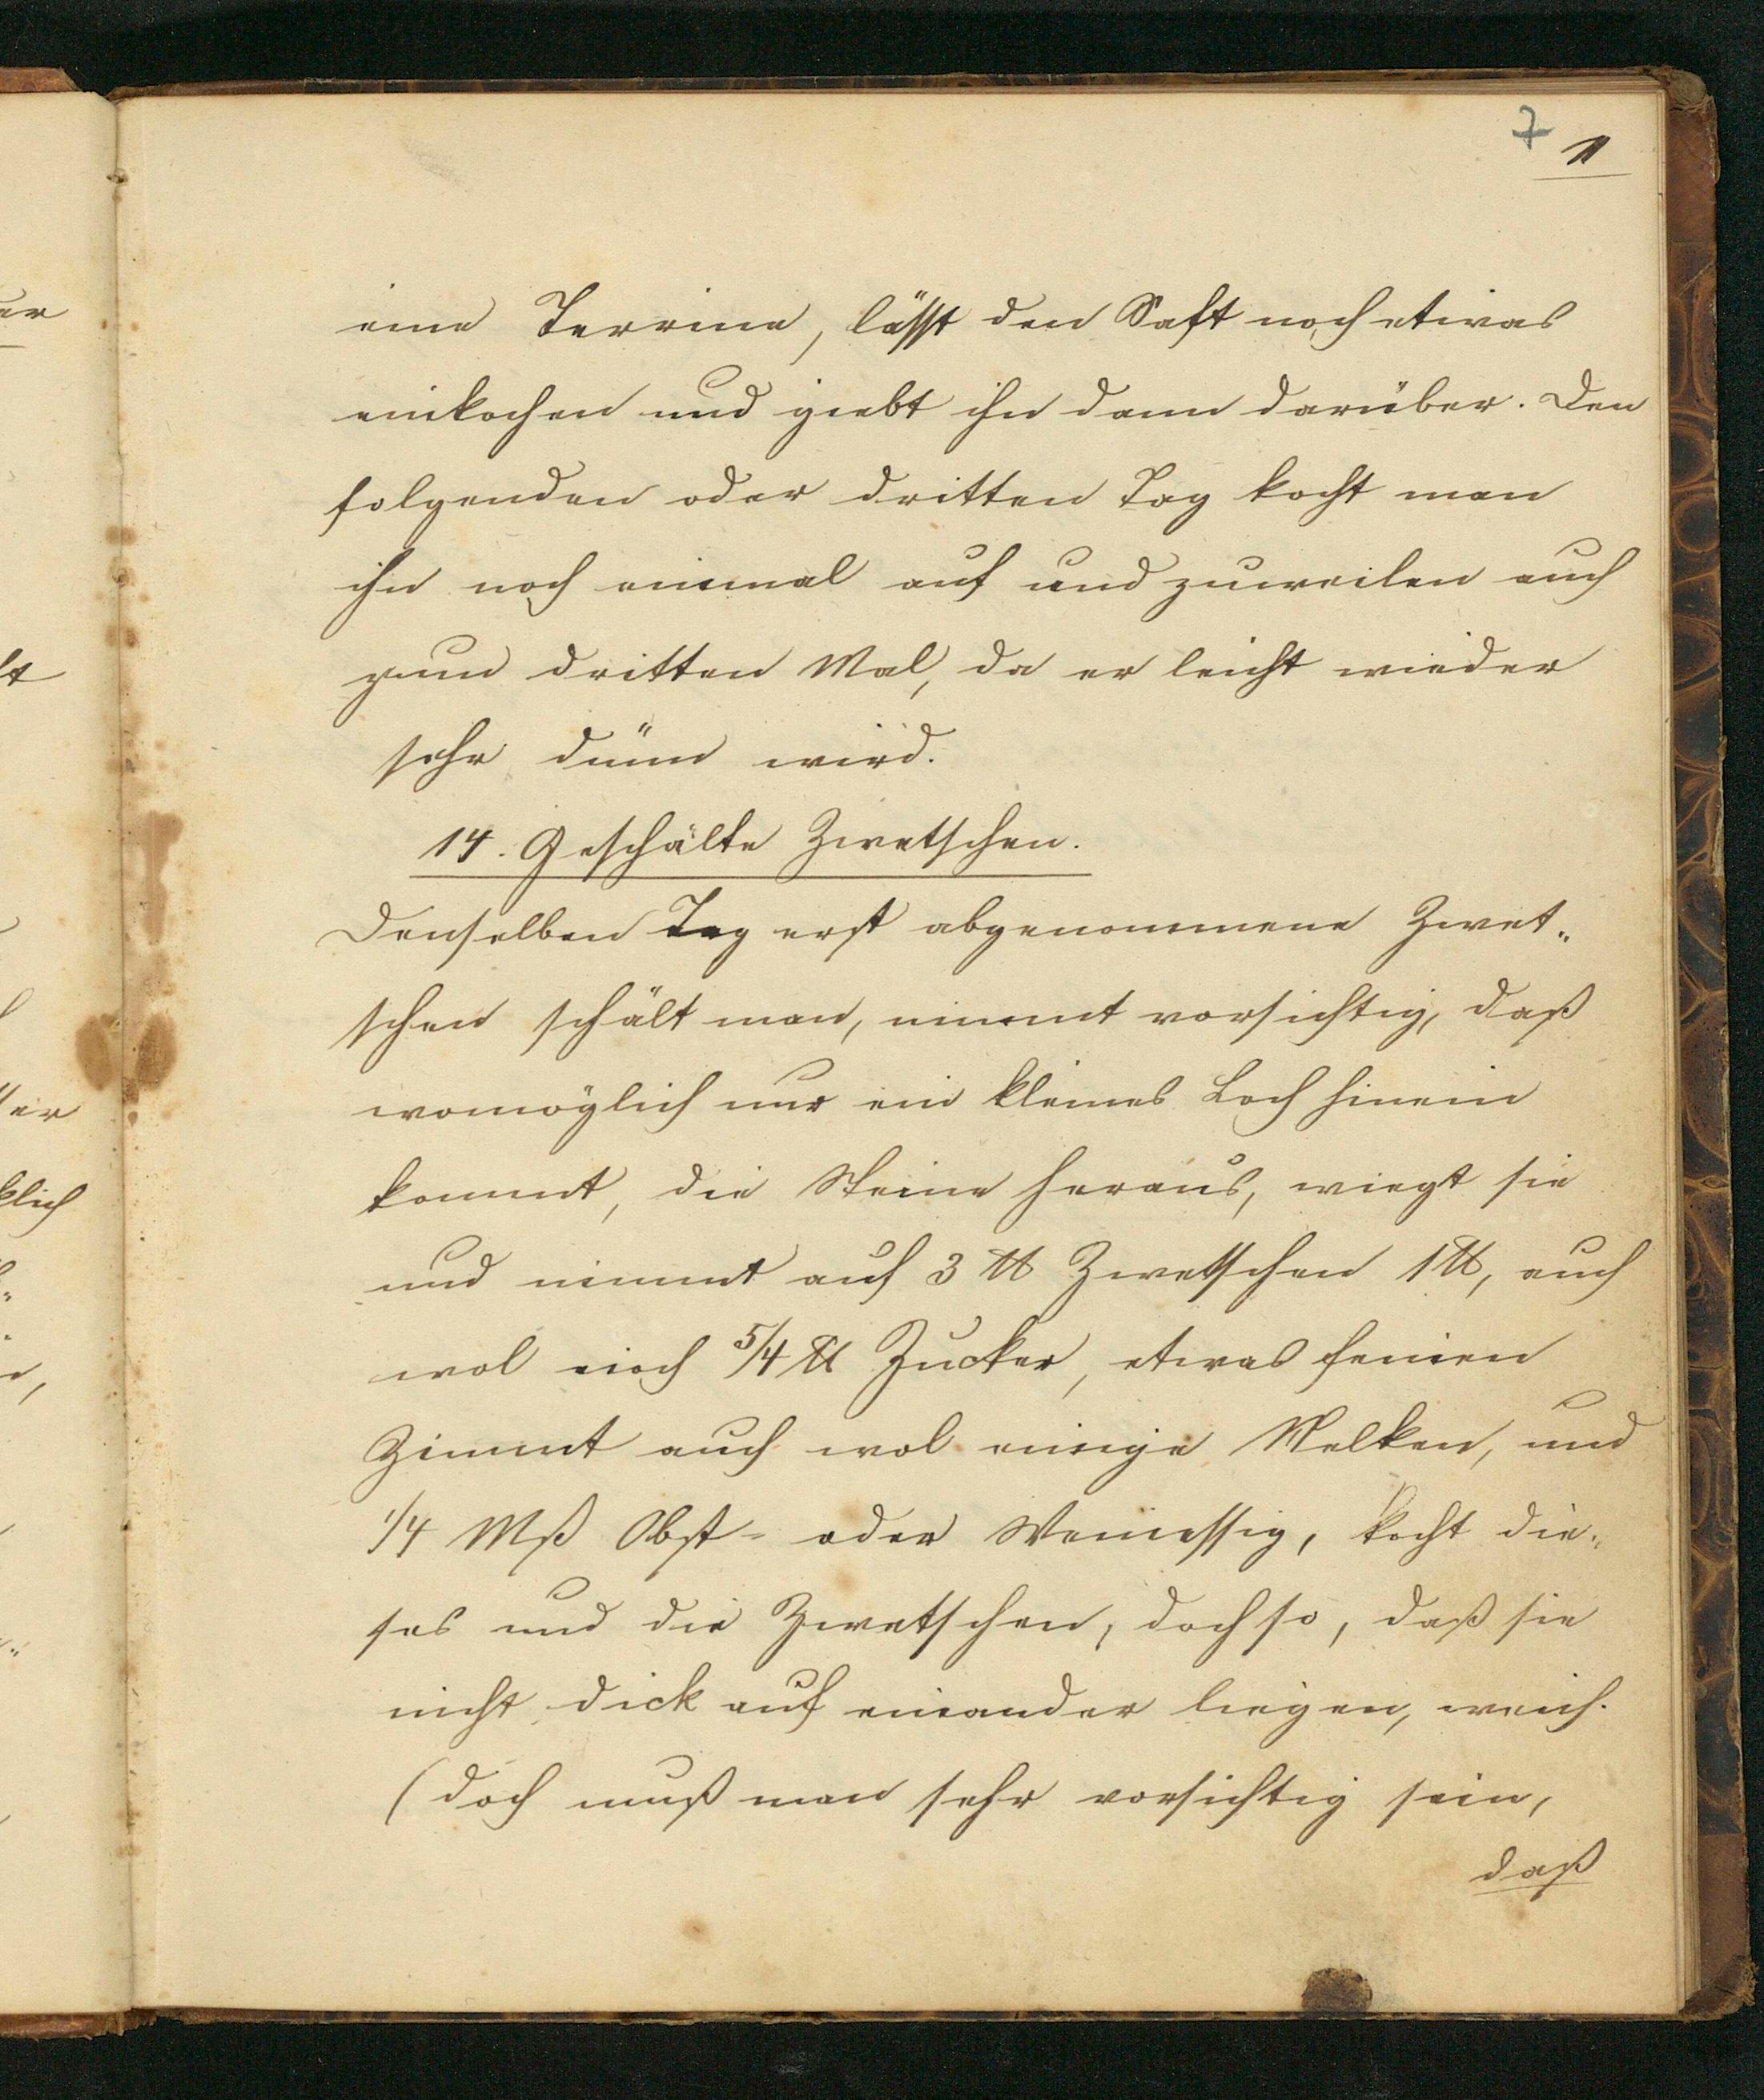 7 11
eine Terrine, lässt den Saft noch etwas
einkochen und giebt ihn dann darüber. Den
folgenden oder dritten Tag kocht man
ihn noch einmal auf und zuweilen auch
zum dritten Mal, da er leicht wieder
sehr dünn wird.
14. Geschälte Zwetschen.
Denselben Tag erst abgenommene Zwet„
schen schält man, nimmt vorsichtig, daß
womöglich nur ein kleines Loch hinein
kommt, die Steine heraus, wiegt sie
und nimmt auf 3 ℔ Zwetschen 1 ℔, auch
wol noch 5/4 ℔ Zucker, etwas feinen
Zimmt auch wol einige Nelken, und
1/4 Mß Obst- oder Weinessig, kocht die„
ses und die Zwetschen, doch so, daß sie
nicht dick auf einander liegen, weich.
(doch muß man sehr vorsichtig sein,
daß
er
lt
er
klich